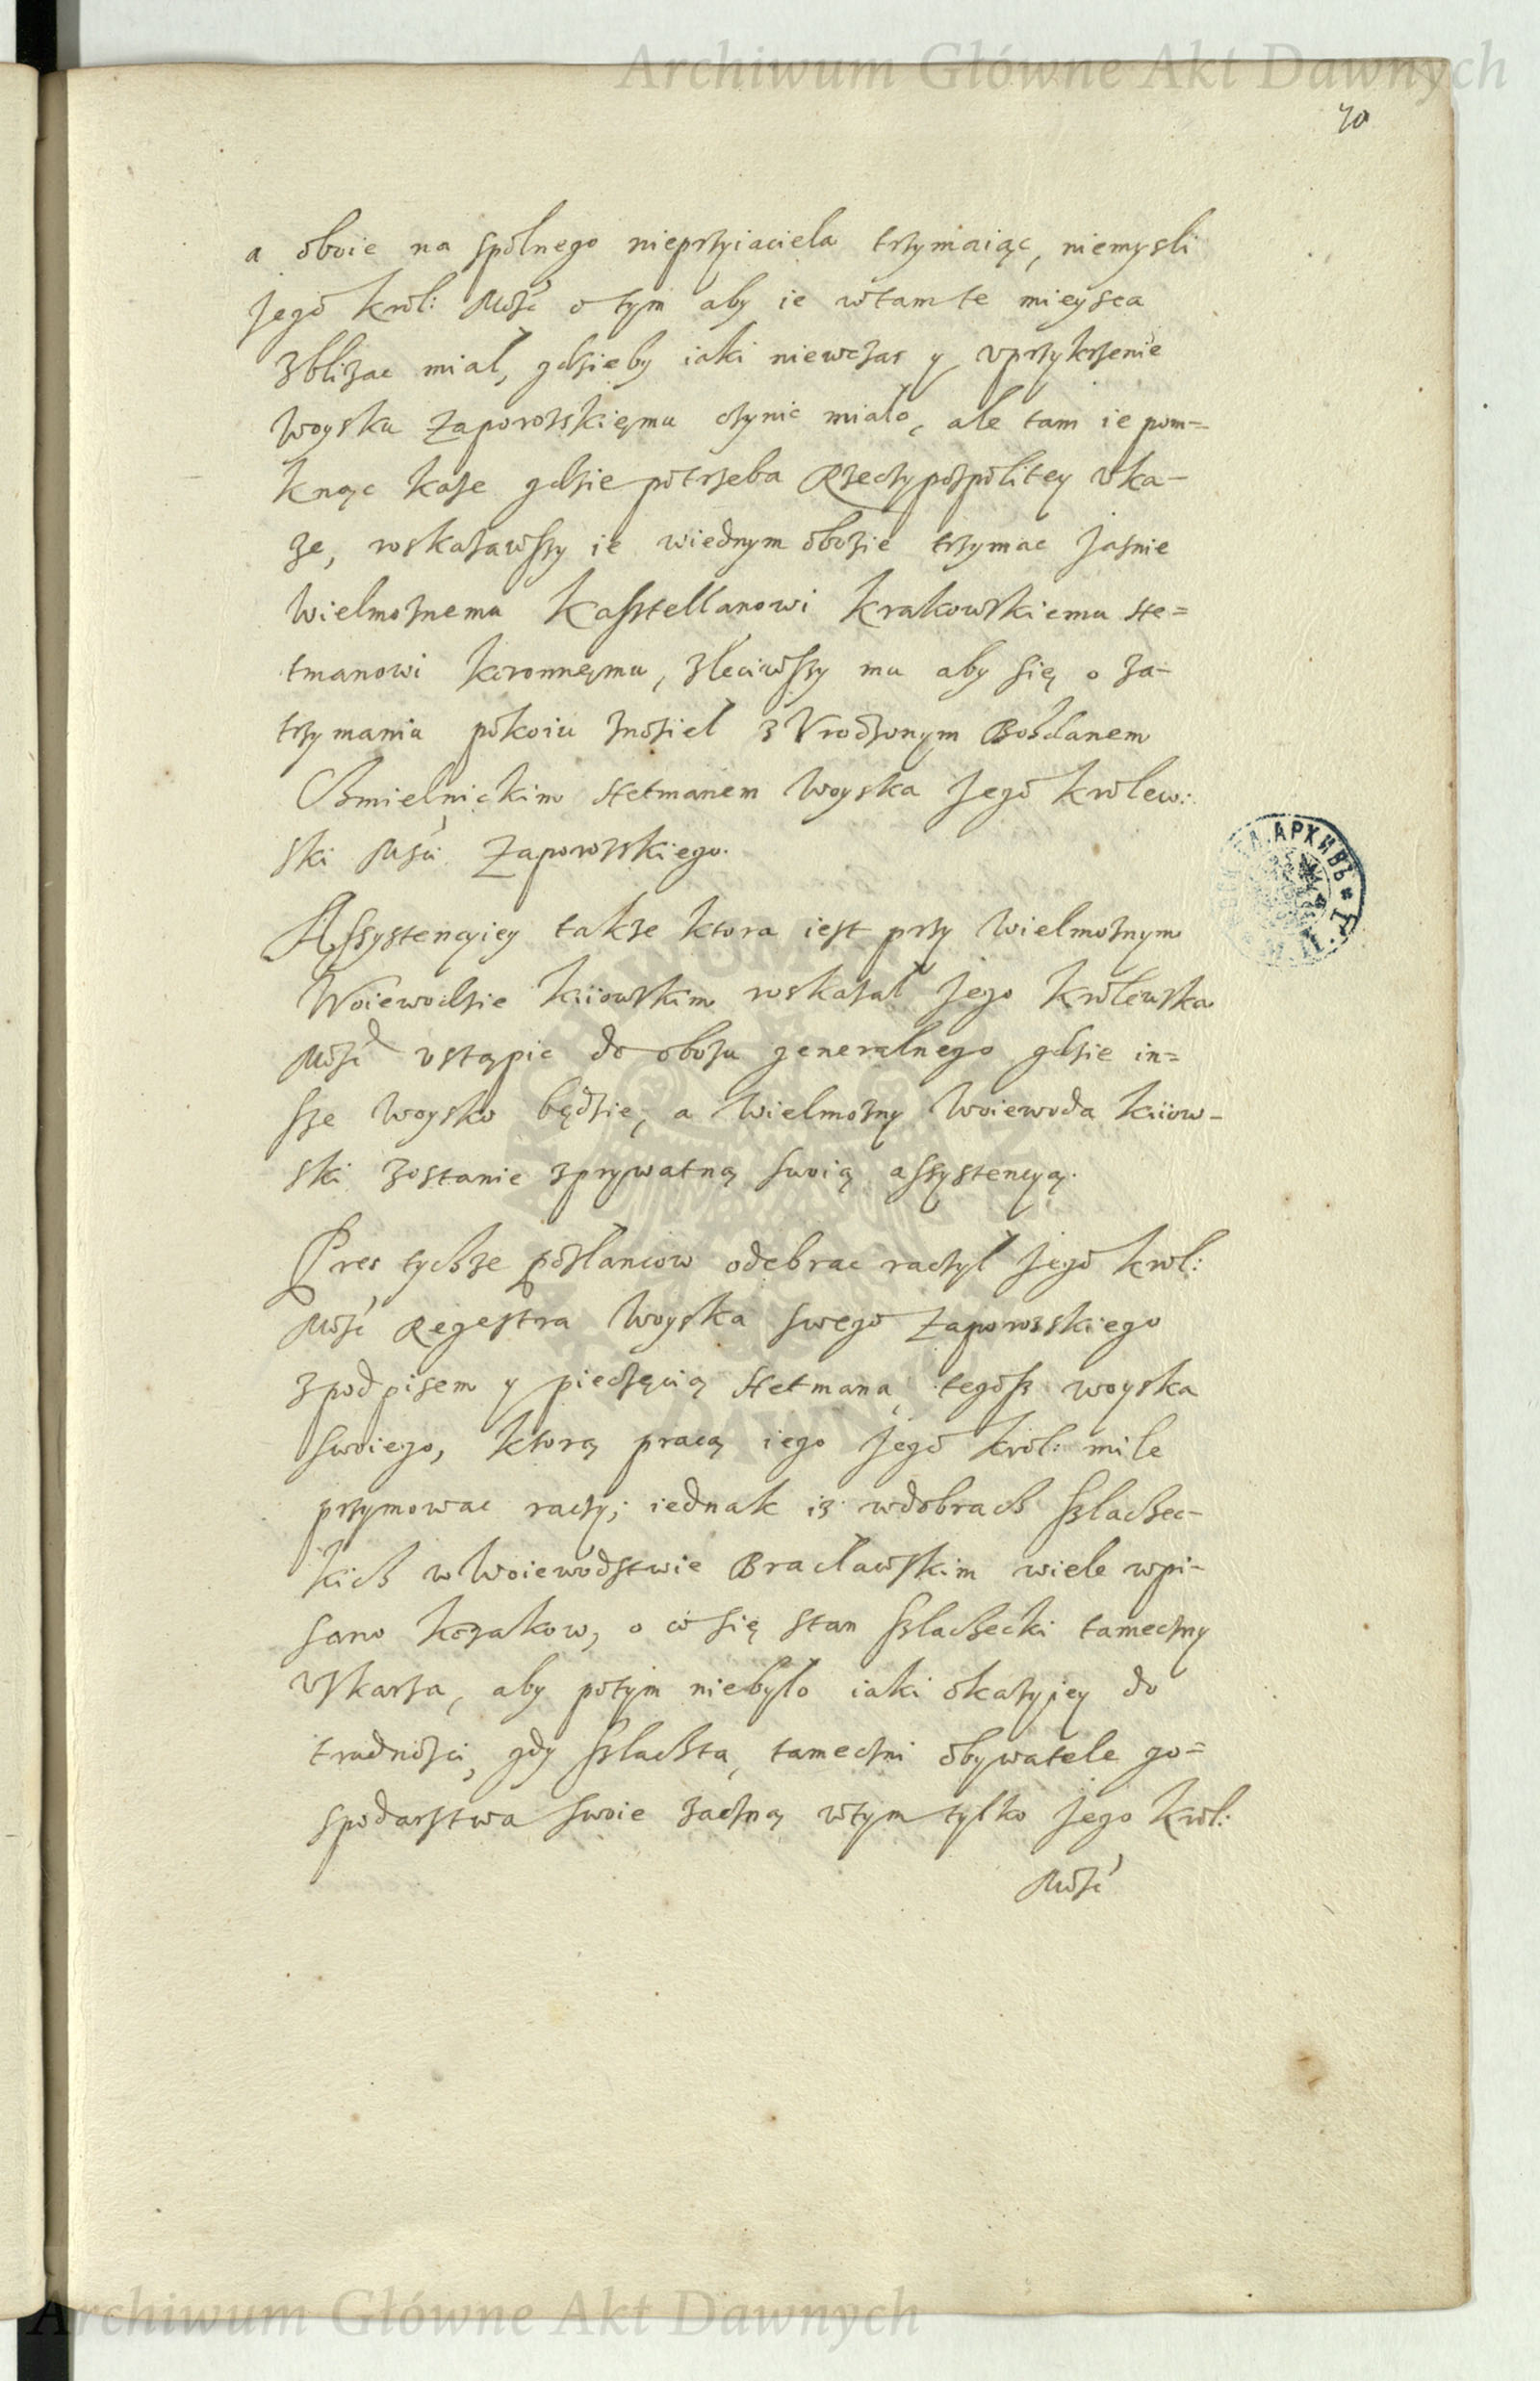 Archiwum Główne Akt Dawnych
70
a oboie na spolnego nieprzyiaciela trzymaiąc, niemysli
Jego Krol: Mość o tym aby ie w tamte mieysca
zblizac miał, gdzieby iaki niewczas y vprzykrzenie
Woysku Zaporozskięmu czynic miało, ale tam ie pom=
knąc kaze gdzie potrzeba Rzeczypospolitey vka-
ze, roskazawszy ie wiednym obozie trzymac Jasnie
Wielmoznemu Kasztellanowi Krakowskiemu He=
tmanowi Koronnęmu, zleciwszy mu aby się o za-
trzymaniu pokoiu znosieł z Vrodzonym Bohdanem
Chmielnickim Hetmanem Woyska Jego Krolew:
ski Mści Zaporozskiego.
Assystencyiey takze ktora iest przy Wielmoznym
Woiewodzie Kiiowskim roskazał Jego Krolewska
Mość vstąpic do obozu generalnego gdzie in=
sze woysko będzie, a Wielmozny Woiewoda Kiiow-
ski zostanie zprywatną swoią assystencyą.
Przes tychze posłancow odebrac raczył Jego Krol:
Mość Regestra Woyska swego Zaporozskiego
zpodpisem y pieczęcią Hetmana tegosz woyska
swoiego, ktorą pracą iego Jego Krol: mile
przymowac raczy; iednak iz wdobrach szlachec-
kich w Woiewodstwie Bracławskim wiele wpi-
sano Kozakow, o co się stan szlachecki tameczny
vskarza, aby potym niebyło iaki okazyiey do
trudności, gdy szlachta, tameczni obywatele go=
spodarstwa swoie zaczną wtym tylko Jego Krol:
Mość
АРХИВЪ
ARCHIWUM
DAWNYCH
Archiwum Główne Akt Dawnych